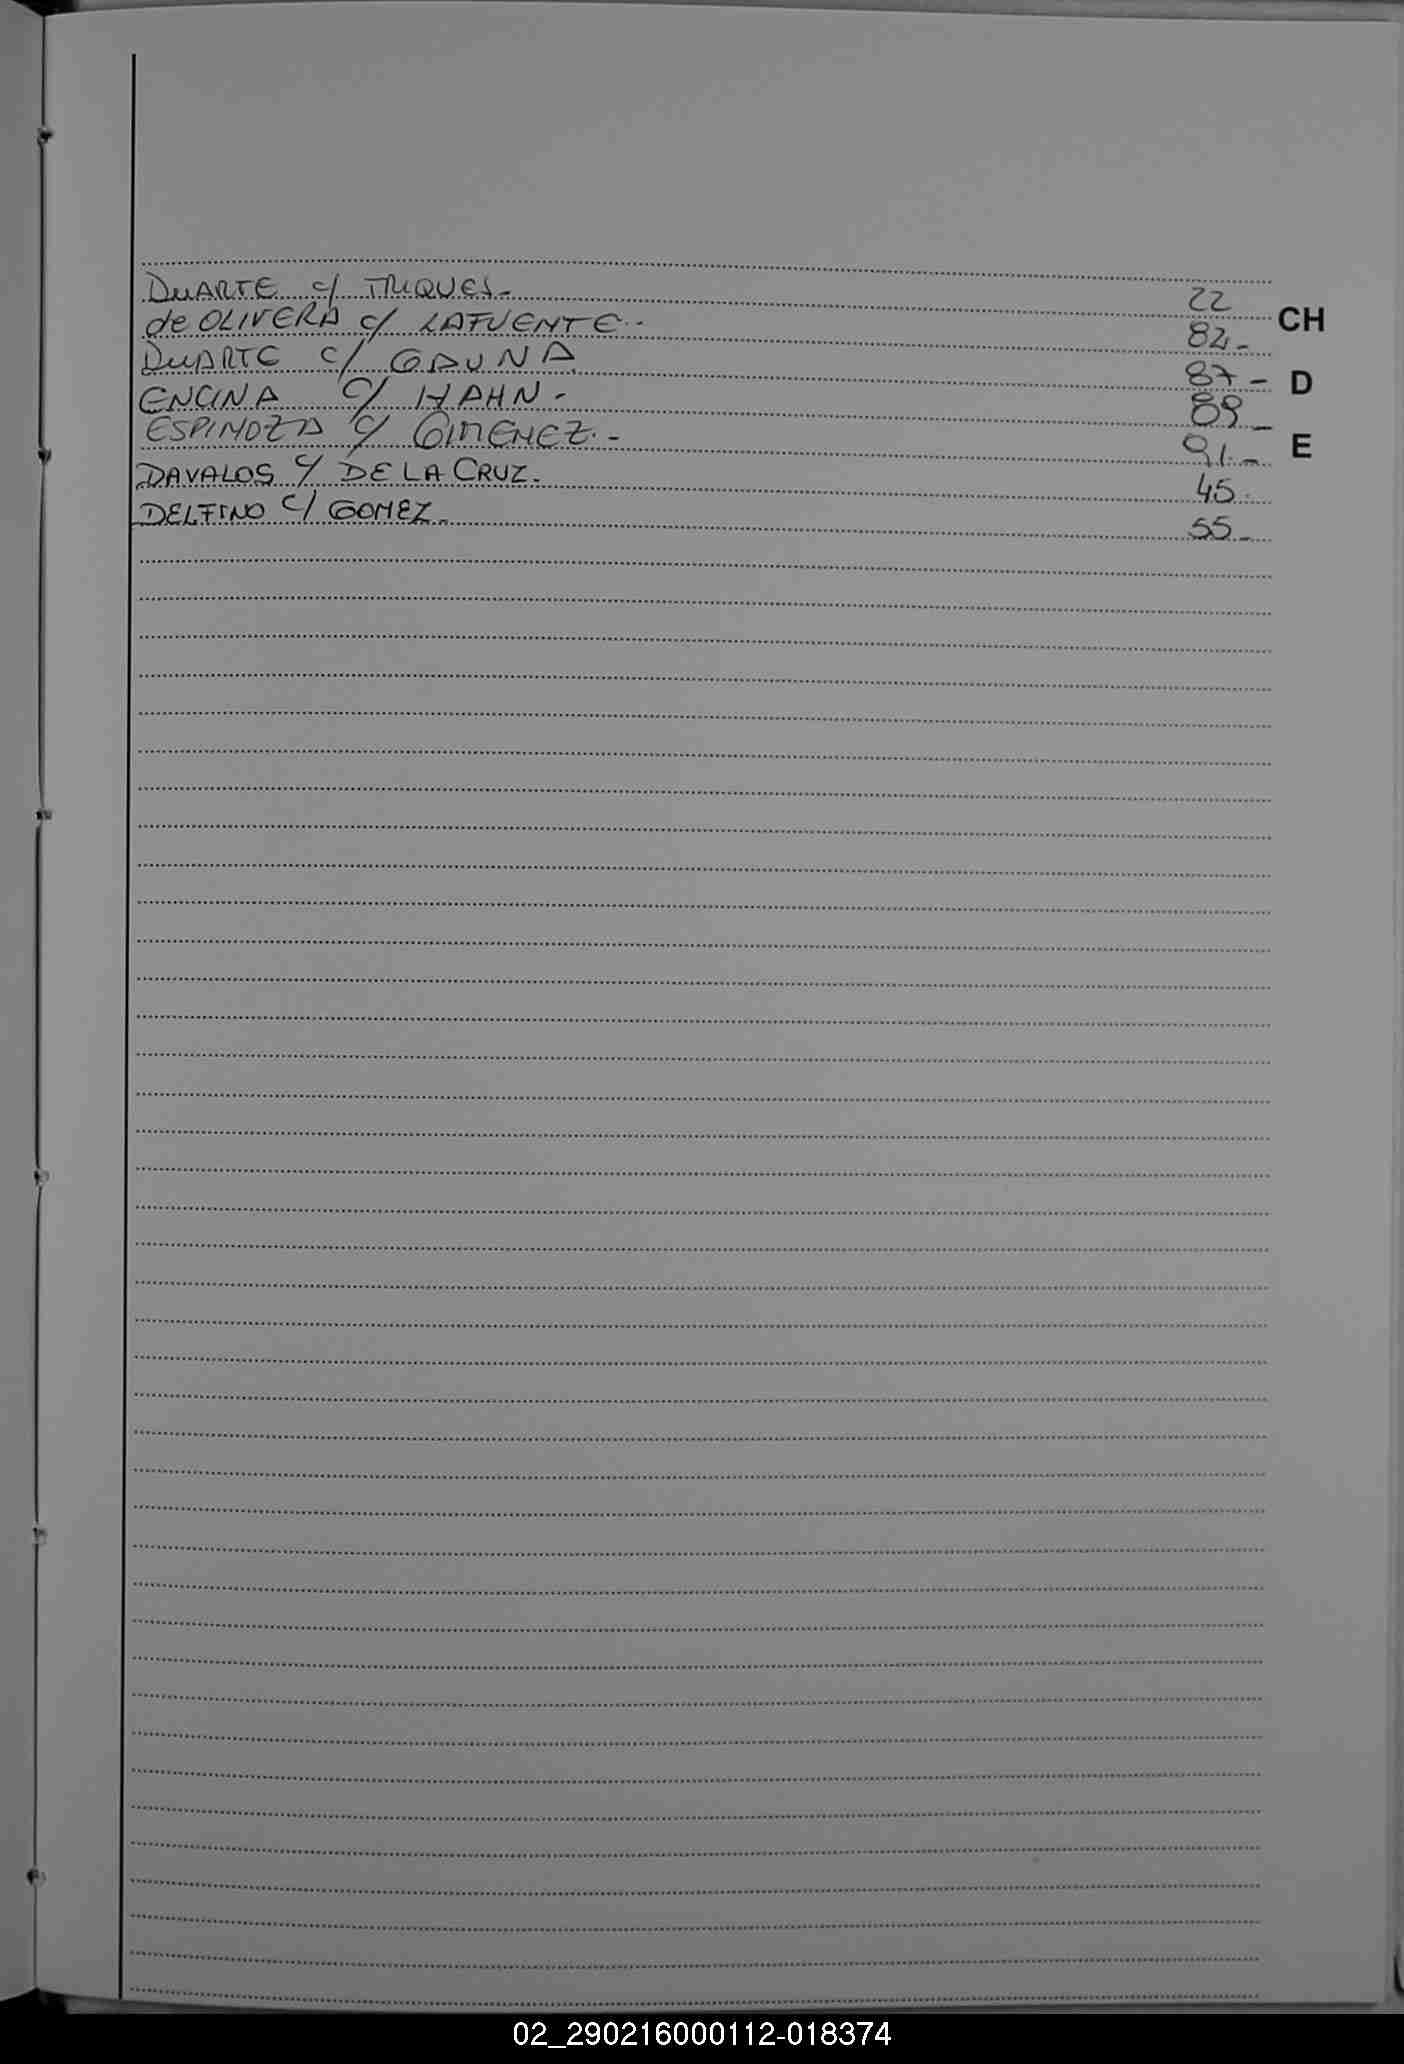 DUARTE c/ TRIQUES.- 22
de OLIVERA c/ LAFUENTE.- 82.-
DUARTE c/ GAUNA. 87.-
ENCINA c/ HAHN.- 89.-
ESPINOZA c/ GIMENEZ.- 91.-
DAVALOS c/ DE LA CRUZ.- 45.
DELFINO c/ GOMEZ.- 55.-
CH
D
E
02_290216000112-018374